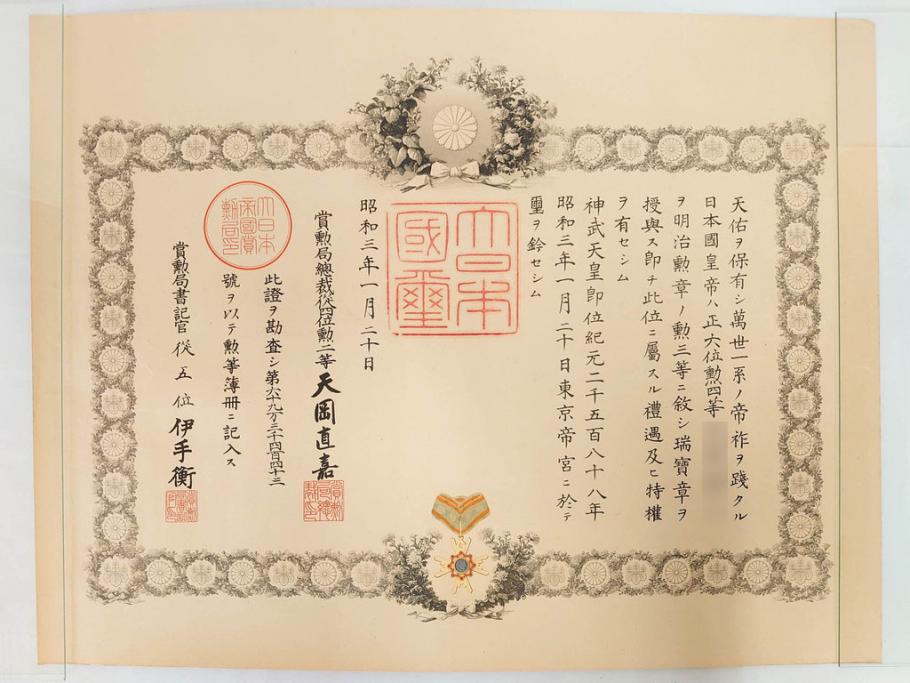 天佑ヲ保有シ萬世一系ノ帝祚ヲ踐タル
日本國皇帝ハ正六位勲四等
ヲ明治勲章ノ勲三等ニ敘シ瑞寶章ヲ
授與ス即チ此位ニ屬スル禮遇及ヒ特權
ヲ有セシム
神武天皇即位紀元二千五百八十八年
昭和三年一月二十日東京帝宮ニ於テ
璽ヲ鈐セシム
大日本
國璽
昭和三年一月二十日
賞勲局總裁從四位勲二等天岡直嘉
大日本
帝國賞
勲局印
此證ヲ勘査シ第六十九万三千四百四十三
號ヲ以テ勲等簿冊ニ記入ス
賞勲局書記官從五位伊手衡